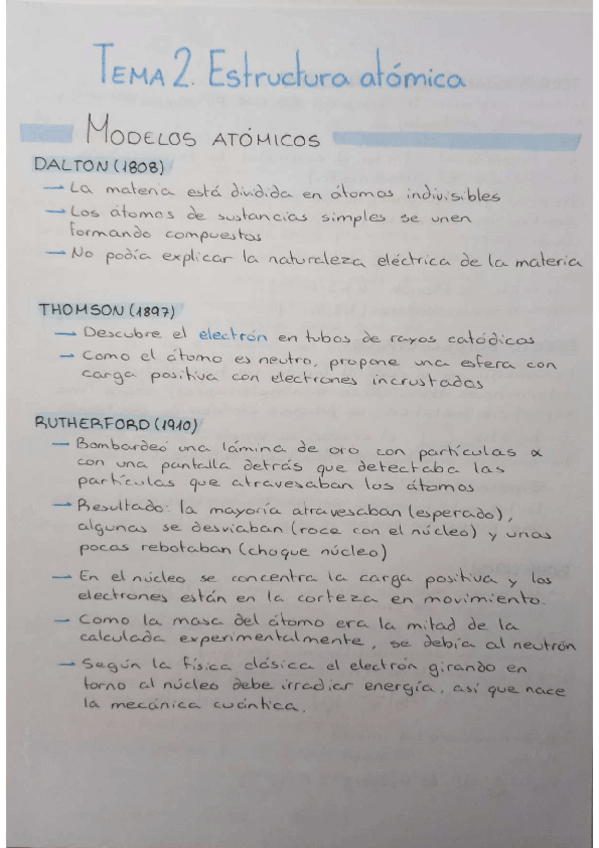 TEMA 2. Estructura atómica
MODELOS ATÓMICOS
DALTON (1808)
→ La materia está dividida en átomos indivisibles
→ Los átomos de sustancias simples se unen
formando compuestos
→ No podía explicar la naturaleza eléctrica de la materia
THOMSON (1897)
→ Descubre el electrón en tubos de rayos catódicos
→ Como el átomo es neutro, propone una esfera con
carga positiva con electrones incrustados
RUTHERFORD (1910)
→ Bombardeó una lámina de oro con partículas α
con una pantalla detrás que detectaba las
partículas que atravesaban los átomos
→ Resultado: la mayoría atravesaban (esperado),
algunas se desviaban (roce con el núcleo) y unas
pocas rebotaban (choque núcleo)
→ En el núcleo se concentra la carga positiva y los
electrones están en la corteza en movimiento.
→ Como la masa del átomo era la mitad de la
calculada experimentalmente, se debía al neutrón
→ Según la física clásica el electrón girando en
torno al núcleo debe irradiar energía, así que nace
la mecánica cuántica.